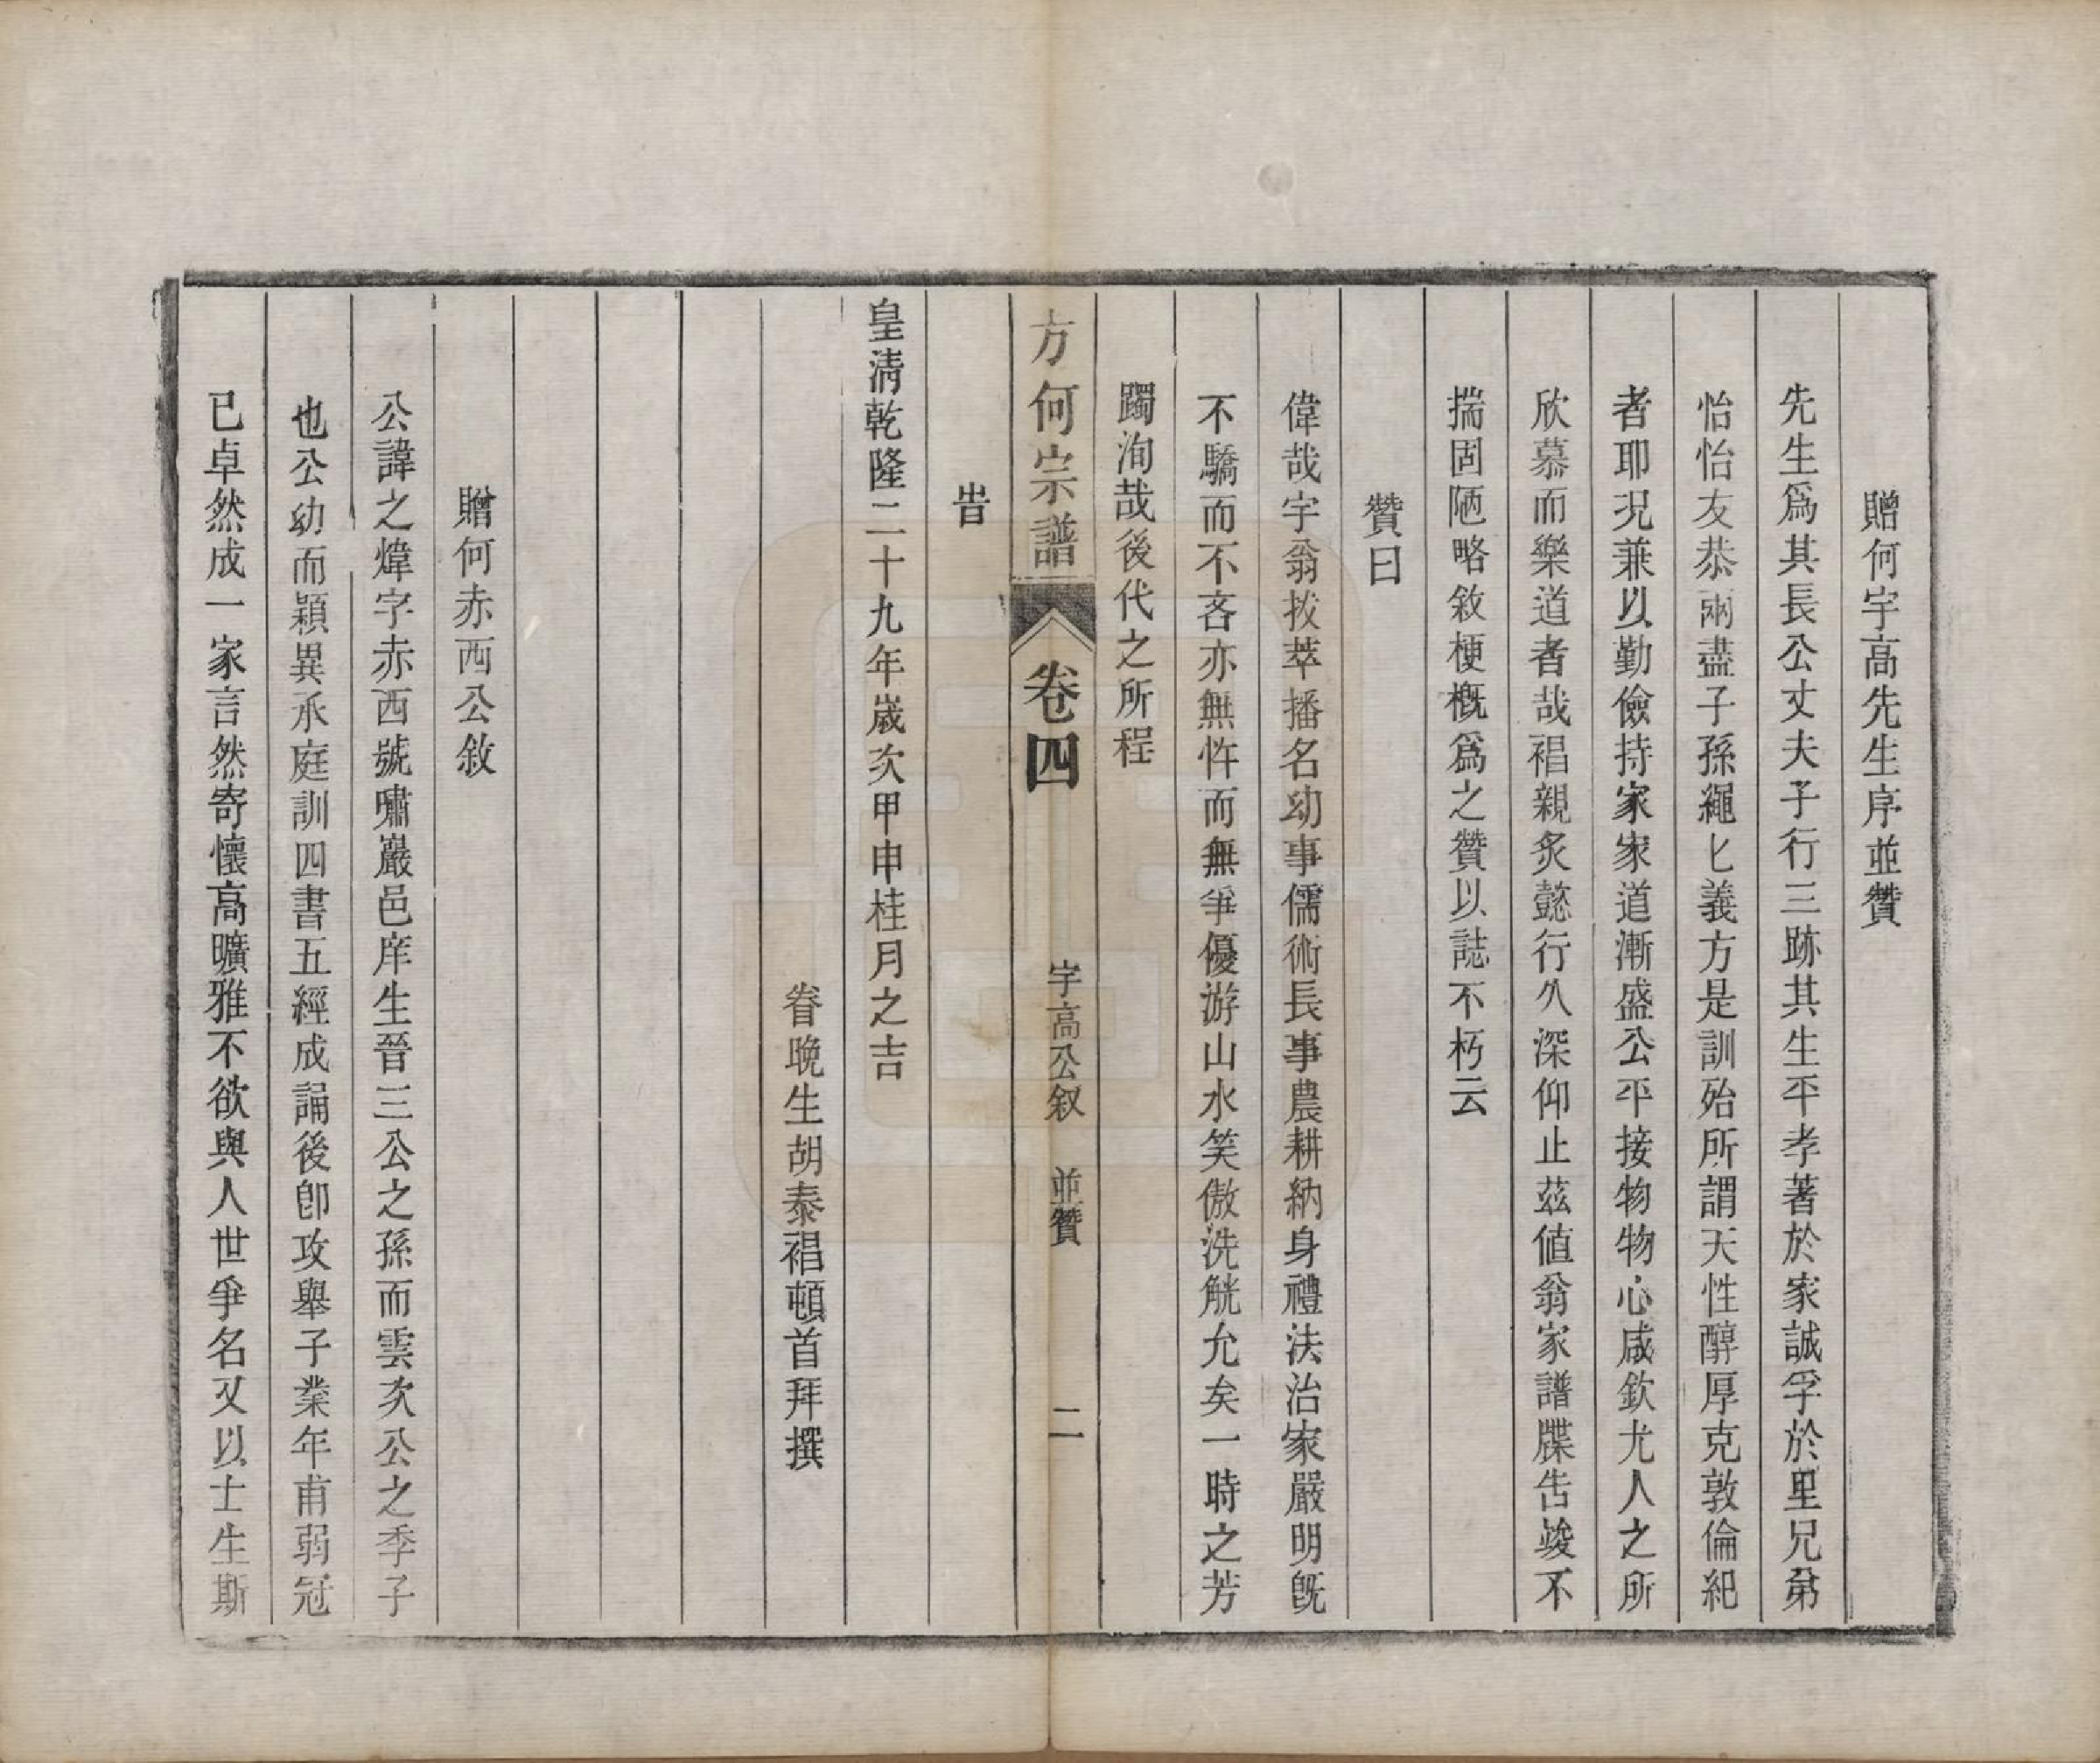 贈何宇高先生序並贊
先生爲其長公丈夫子行三跡其生平孝著於家誠孚於里兄弟
怡怡友恭兩盡子孫繩匕義方是訓殆所謂天性醇厚克敦倫紀
者耶況兼以勤儉持家家道漸盛公平接物物心咸欽尤人之所
欣慕而樂道者哉裮親炙懿行久深仰止茲值翁家譜牒告竣不
揣固陋略敘梗概爲之贊以誌不朽云
贊曰
偉哉宇翁拔萃播名幼事儒術長事農耕納身禮法治家嚴明旣
不驕而不吝亦無忤而無爭優游山水笑傲洗觥允矣一時之芳
躅洵哉後代之所程
方何宗譜 卷四 宇高公叙 並贊 二
旹
皇淸乾隆二十九年歲次甲申桂月之吉
眷晚生胡泰裮頓首拜撰
贈何赤西公敘
公諱之煒字赤西號嘯巖邑庠生晉三公之孫而雲次公之季子
也公幼而穎異承庭訓四書五經成誦後卽攻舉子業年甫弱冠
已卓然成一家言然寄懷高曠雅不欲與人世爭名又以士生斯